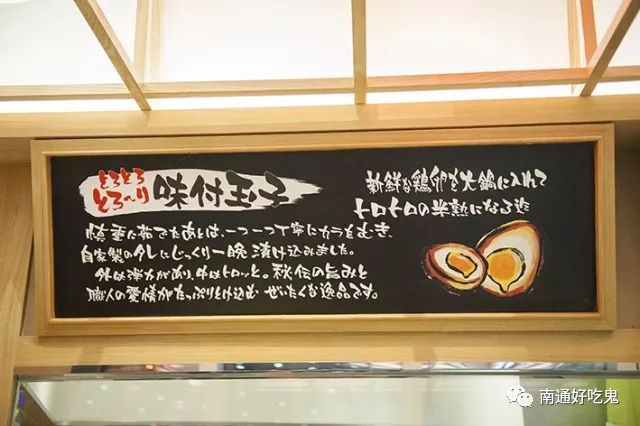 とろとろ
とろ〜り
味付玉子
新鮮な鶏卵を大鍋に入れて
トロトロの半熟になる迄
慎重に茹でたあとは、一つ一つ丁寧にカラをむき、
自家製のタレにじっくり一晩漬け込みました。
外は弾力があり、中はトロッと。秘伝の旨みと
職人の愛情がたっぷりとけ込む ぜいたくな逸品です。
南通好吃鬼